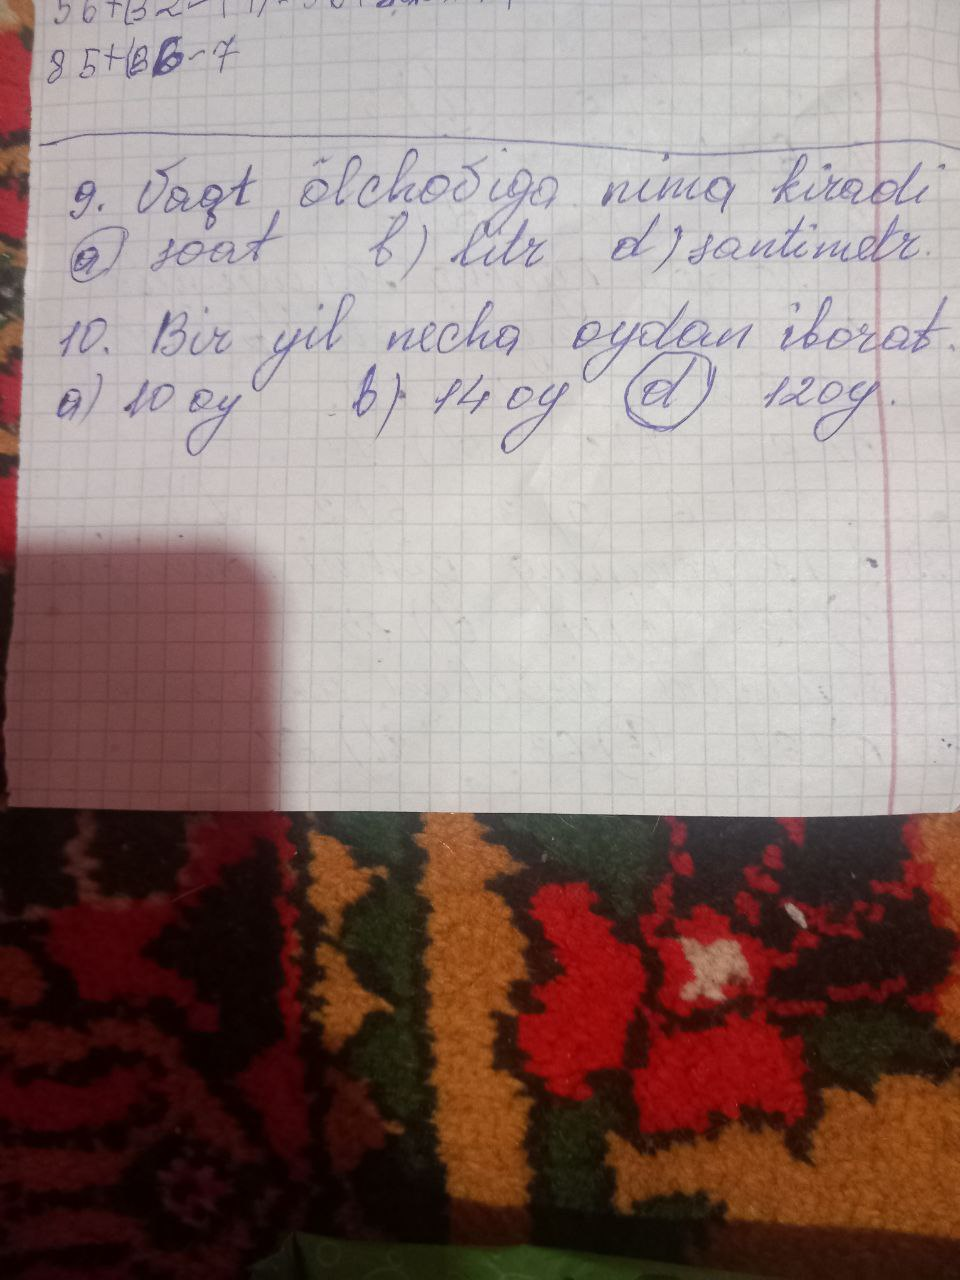 85+(36-7
9. Vaqt õlchoviga nima kiradi
a) soat b) litr d) santimetr.
10. Bir yil necha oydan iborat.
a) 10 oy b) 14 oy d) 12 oy.